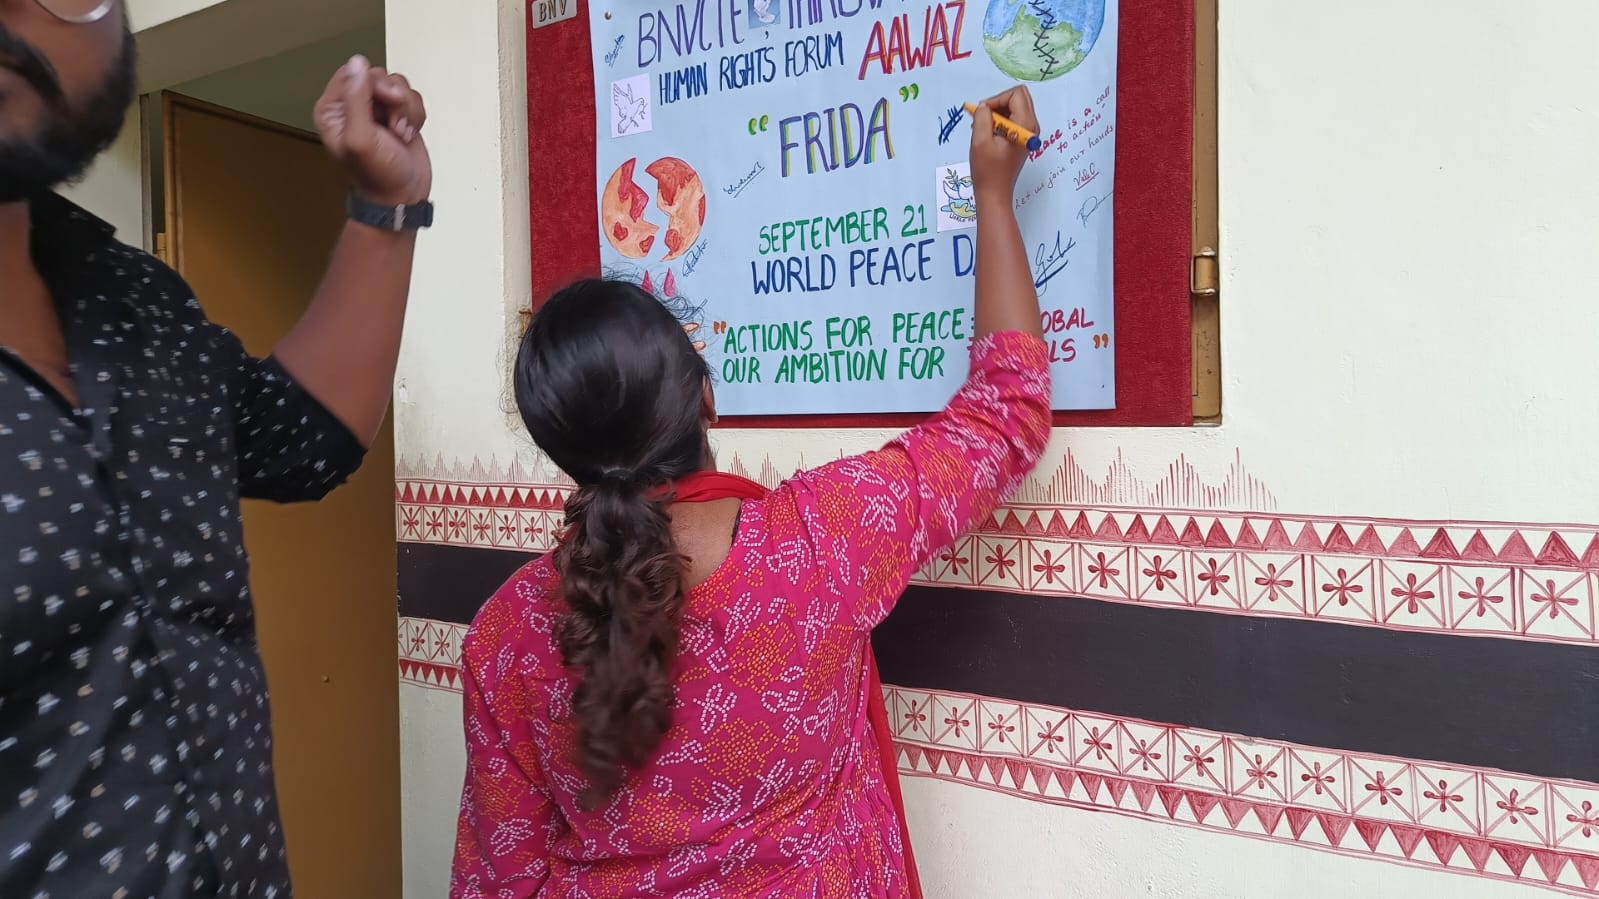 BNV
BNVCTE,
HUMAN RIGHTS FORUM AAWAZ
"FRIDA"
Peace is a call
to action
Let us join our hands
SEPTEMBER 21
WORLD PEACE
"ACTIONS FOR PEACE:
OUR AMBITION FOR "